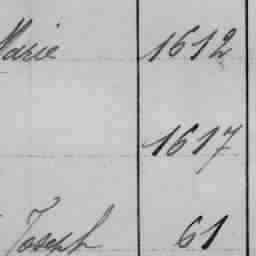 Marie 1612
1617
Joseph 61